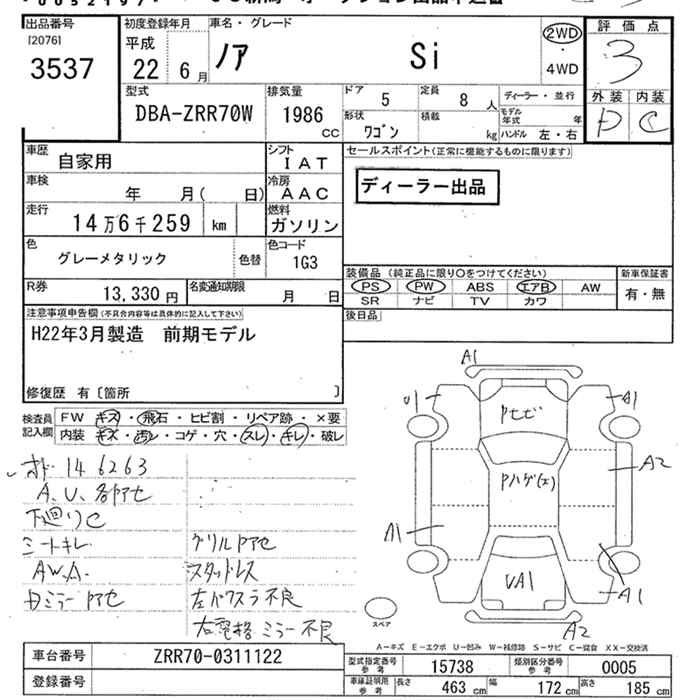 出品番号 初度登録年月 車名・グレード 評価点
[20761]
3537
平成 22 6月
ノア Si
2WD ・ 4WD
3
型式 排気量 ドア 定員 ディーラー・並行 外装 内装
DBA-ZRR70W 1986 CC 5 8人
形状 ワゴン 積載 kg モデル年式 年 ハンドル 左・右
D C
車歴 自家用 シフト IAT
セールスポイント(正常に機能するものに限ります)
車検 年 月( 日) 冷房 AAC
ディーラー出品
走行 14万6千259 km 燃料 ガソリン
色 グレーメタリック 色替 色コード 1G3
装備品 (純正品に限り○をつけてください) 新車保証書
R券 13,330円 名変通知期限 月 日
PS PW ABS エアB AW 有・無
SR ナビ TV カワ
注意事項申告欄(不具合内容等は具体的に記入して下さい)
後日品
H22年3月製造 前期モデル
修復歴 有〔箇所 〕
検査員記入欄 FW キズ・飛石・ヒビ割・リペア跡・×要
内装 キズ・汚レ・コゲ・穴・スレ・キレ・破レ
A1
A1
Pセビ
A2
Pハゲ(エ)
A1
UA1
A1
A2
146263
A、U、各アセ
下廻りC
シートキレ
グリルPアセ
AW.A.
スタッドレス
ミラーPアセ
左パワスラ不良
右電格ミラー不良
スペア
A-キズ E-エクボ U-凹み W-補修跡 S-サビ C-腐食 XX-交換済
車台番号 ZRR70-0311122
登録番号
型式指定番号 参考 15738 類別区分番号 参考 0005
車庫証明用 参考 長さ 463 cm 幅 172 cm 高さ 185 cm